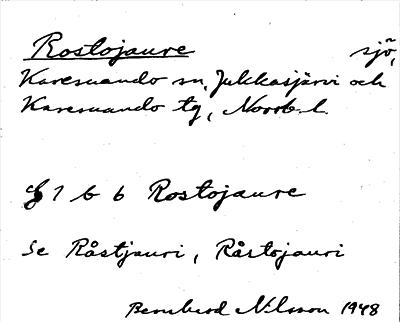 Rostojaure sjö,
Karesuando sn, Jukkasjärvi och
Karesuando tg, Norrb. l.
1 6 6 Rostojaure
Se Råstjauri, Råstojauri
Bernhard Nilsson 1948